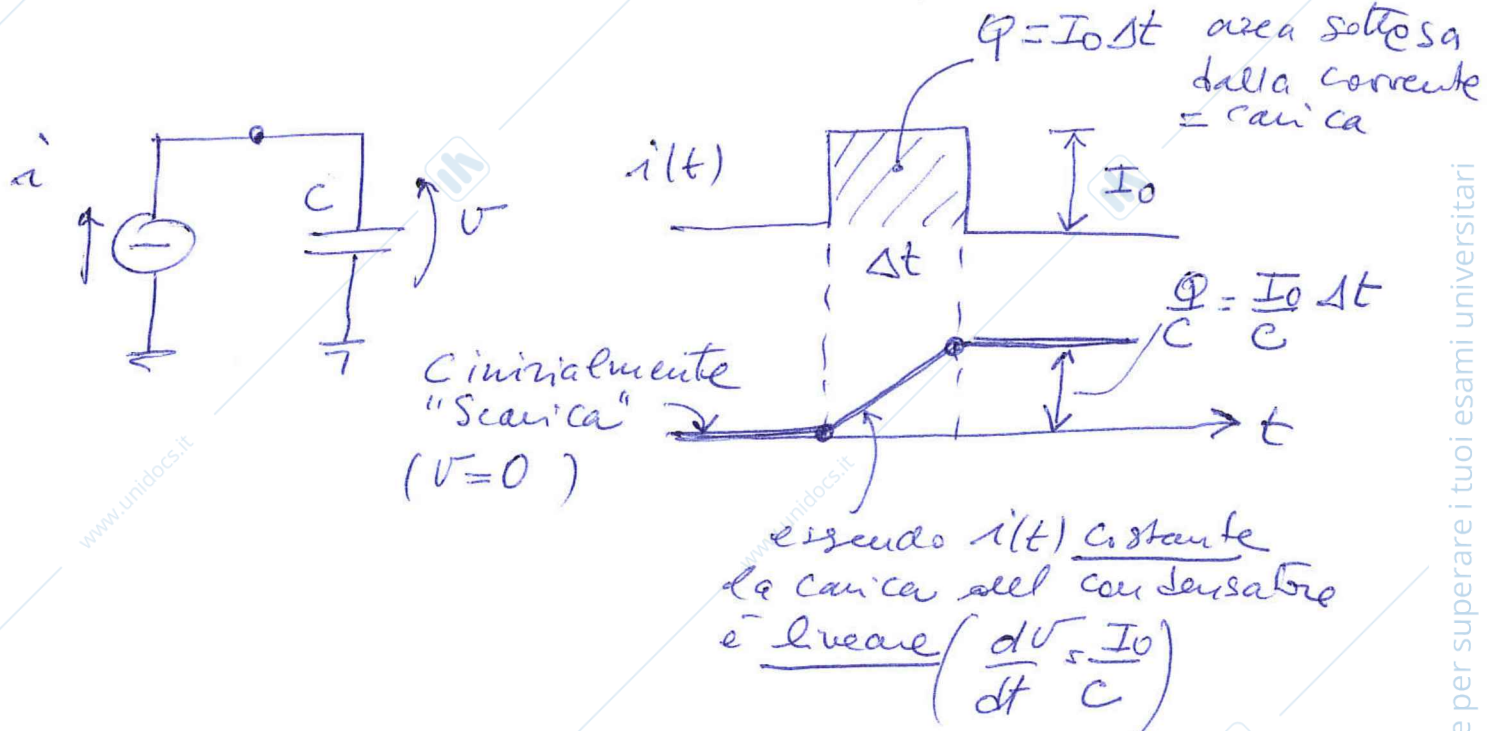 Q = I₀ Δt area sottesa
dalla corrente
= carica
i
C
v
i(t)
I₀
Δt
Q/C = I₀/C Δt
C inizialmente
"Scarica"
(v=0)
t
essendo i(t) costante
la carica del condensatore
è lineare (dv/dt = I₀/C)
www.unidocs.it
www.unidocs.it
e per superare i tuoi esami universitari